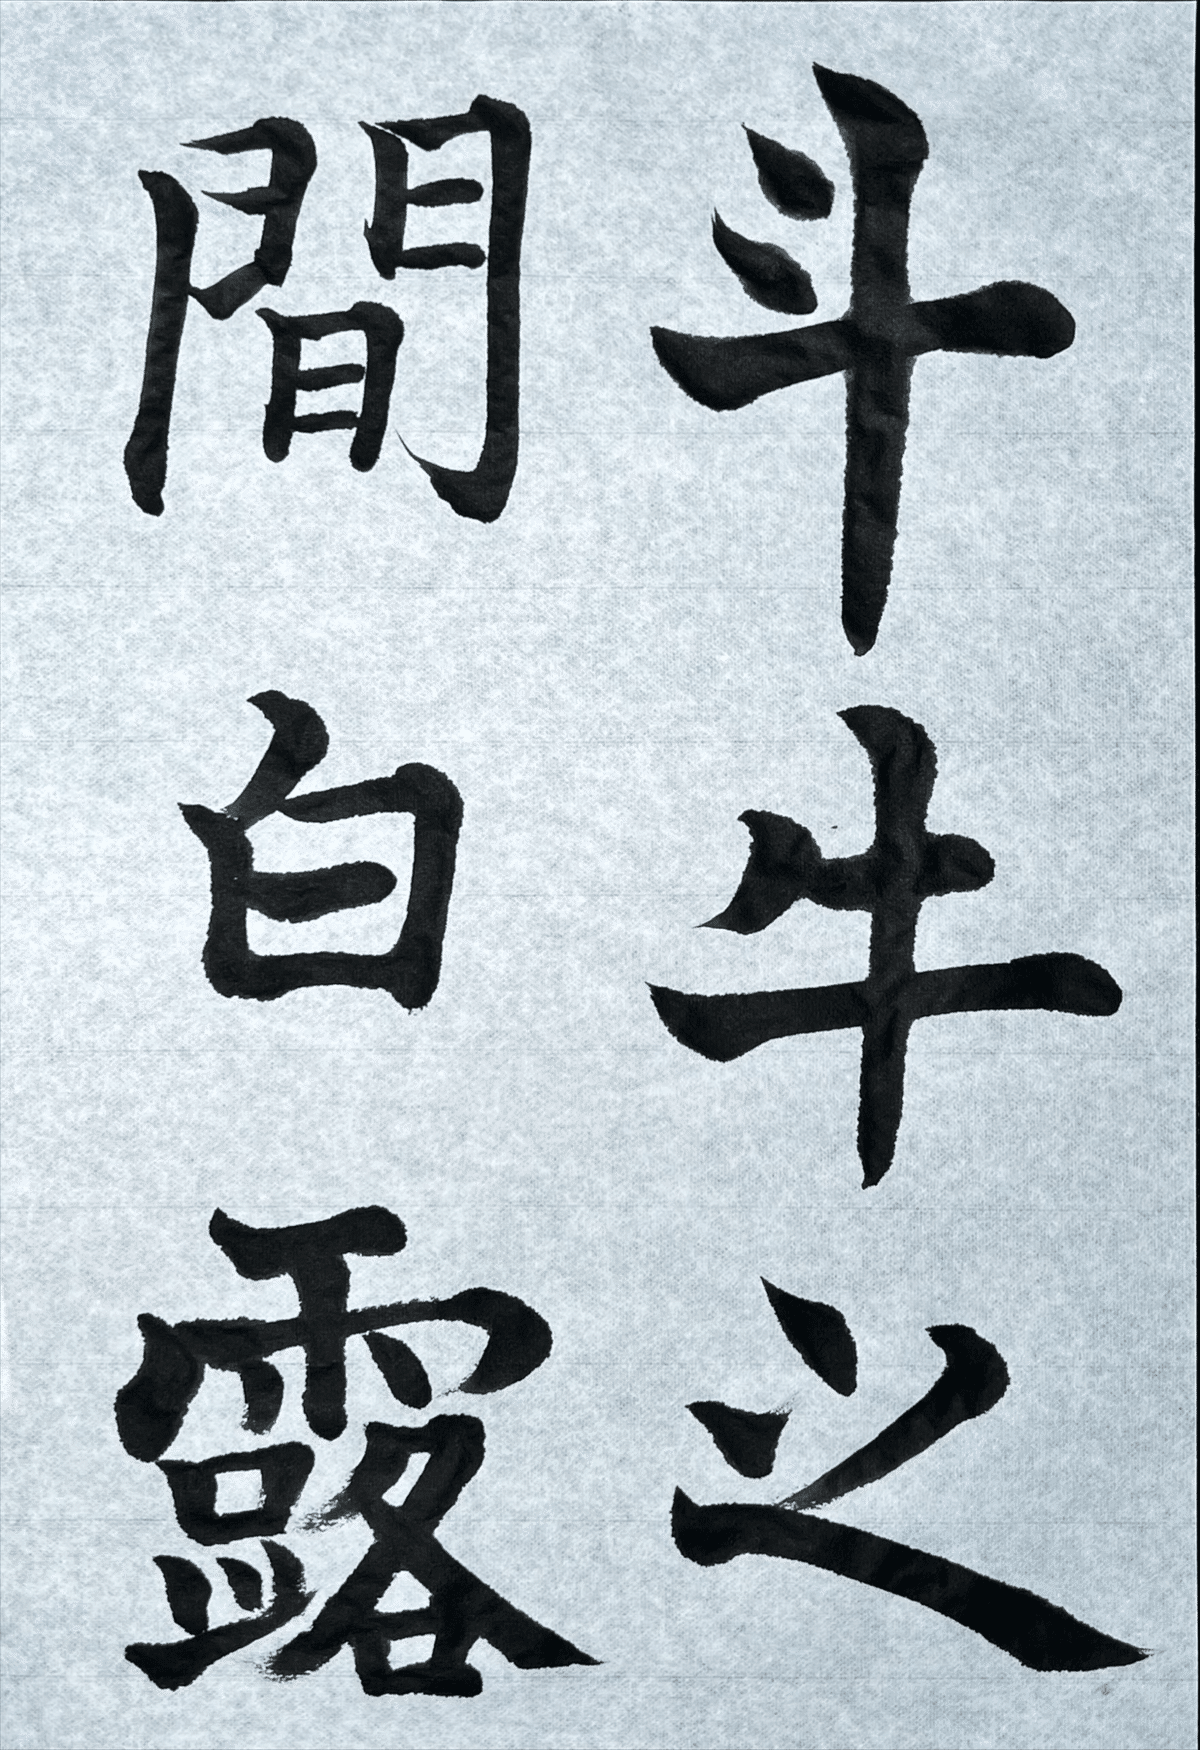 斗牛之
間白露